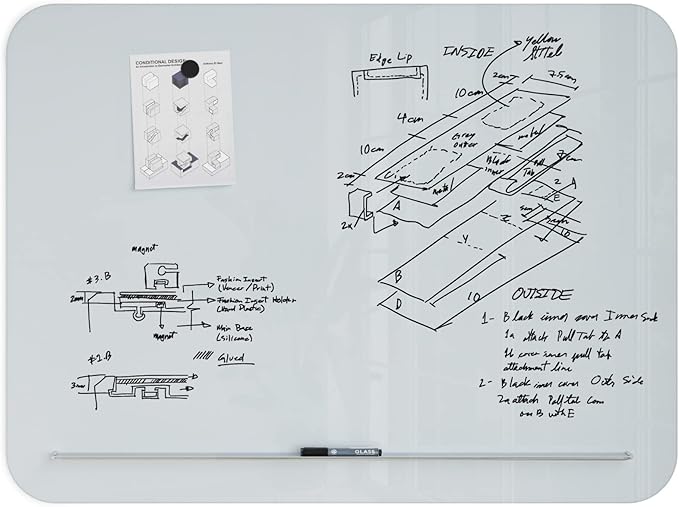 CONDITIONAL DESIGN
Edge Lip
INSIDE
Yellow
2cm
7.5cm
10cm
4cm
10cm
2cm
Gray
outer
metal
Black
inner
Pull
Tab
7cm
metal
A
2x
2
A
E
5cm
right
Y
B
D
10
magnet
#3.B
2mm
Fashion Insert
(Veneer/Print)
Fashion Insert Holder
(Hard Plastic)
Main Base
(silicone)
magnet
Glued
#2.B
3mm
OUTSIDE
1- Black inner cover Inner
1a attach Pull Tab to A
1b cover inner pull tab
attachment line
2- Black inner cover Side
2a attach
on B with E
QLASS